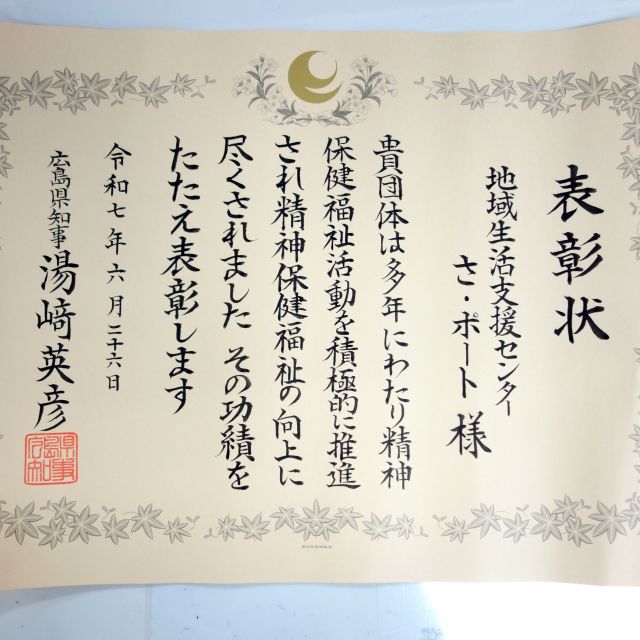 表彰状
地域生活支援センター
さ・ポート 様
貴団体は多年にわたり精神
保健福祉活動を積極的に推進
され精神保健福祉の向上に
尽くされました その功績を
たたえ表彰します
令和七年六月二十六日
広島県知事 湯﨑英彦